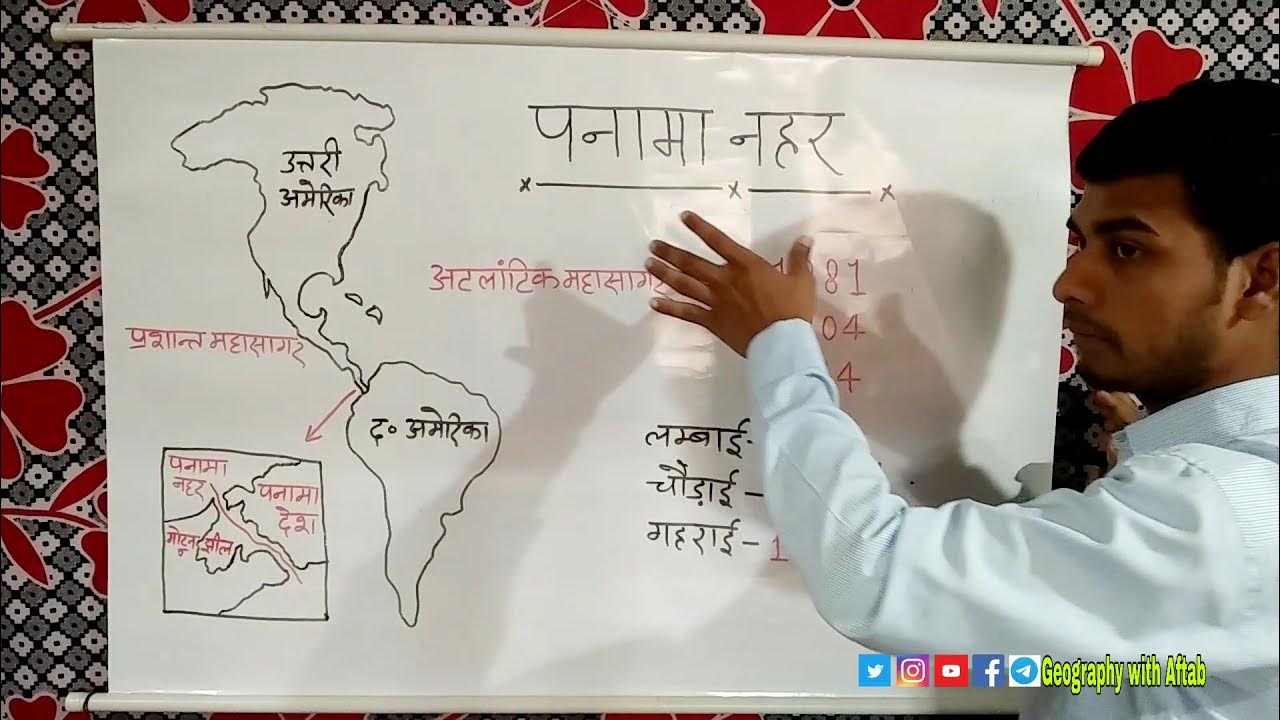 पनामा नहर
उत्तरी
अमेरिका
अटलांटिक महासागर
81
04
4
प्रशान्त महासागर
द० अमेरिका
लम्बाई-
चौड़ाई-
गहराई- 1
पनामा
नहर
पनामा
देश
झील
Geography with Aftab